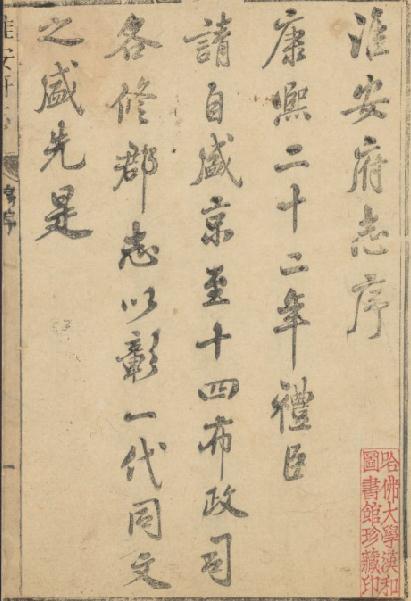 淮安府志序
康熙二十二年禮臣
請自盛京至十四布政司
各修郡志以彰一代同文
之盛先是
淮安府志
序
一
哈佛大學漢和
圖書館珍藏印